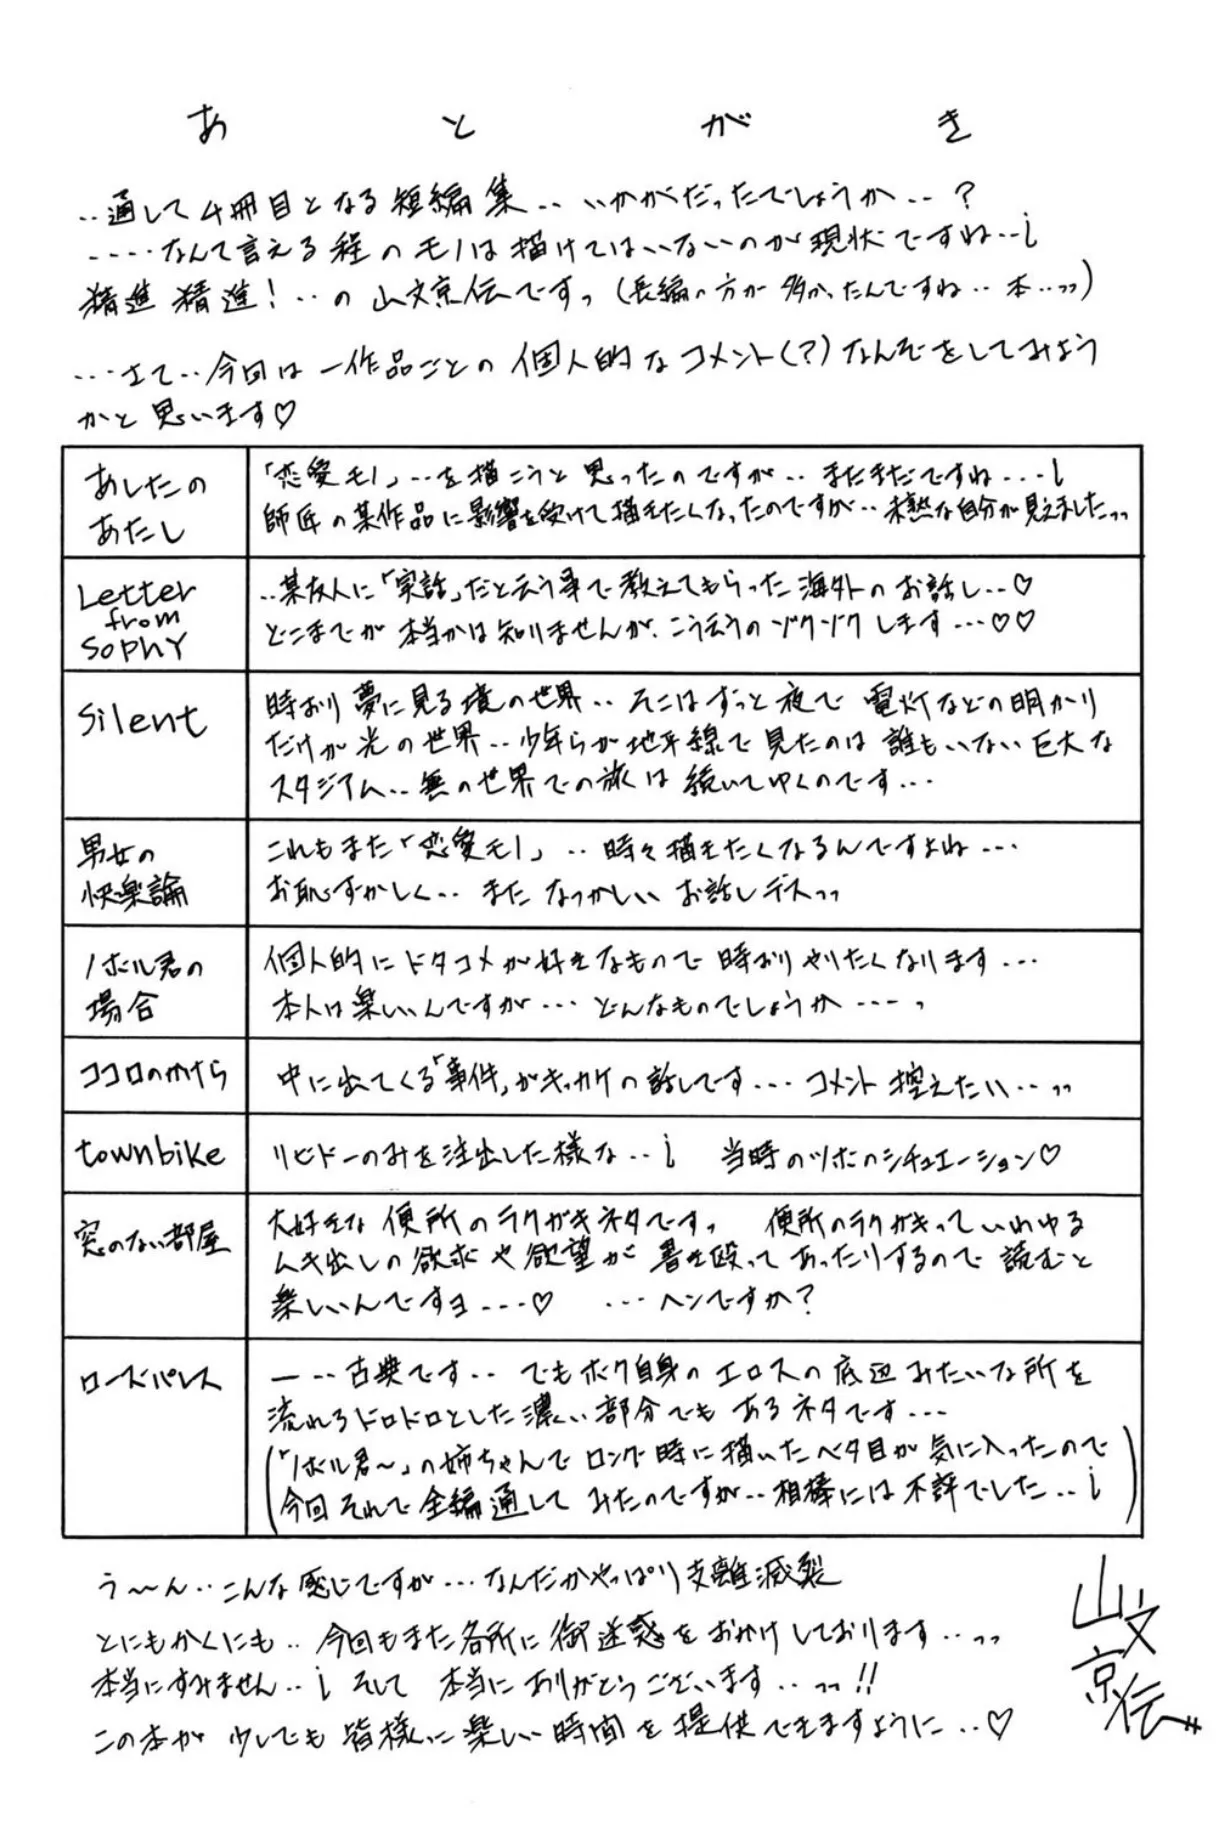 あとがき
‥通して4冊目となる短編集‥いかがだったでしょうか‥?
‥‥なんて言える程のモノは描けてはいないのが現状ですね‥¡
精進 精進!‥の山文京伝ですっ(長編の方が多かったんですね‥本‥っっ)
‥‥さて‥今回は一作品ごとの個人的なコメント(?)なんぞをしてみよう
かと思います♡
あしたの
あたし
「恋愛モノ」‥を描こうと思ったのですが‥まだまだですね‥‥¡
師匠の某作品に影響を受けて描きたくなったのですが‥未熟な自分が見えましたっっ
Letter
from
SophY
‥某友人に「実話」だと云う事で教えてもらった海外のお話し‥♡
どこまでが本当かは知りませんが、こう云うのゾクゾクします‥‥♡♡
Silent
時おり夢に見る境の世界‥そこはずっと夜で電灯などの明かり
だけが光の世界‥少年らが地平線で見たのは誰もいない巨大な
スタジアム‥無の世界での旅は続いてゆくのです‥‥
男女の
快楽論
これもまた「恋愛モノ」‥時々描きたくなるんですよね‥‥
お恥ずかしく‥またなつかしいお話しデスっっ
ノボル君の
場合
個人的にドタコメが好きなもので時おりやりたくなります‥‥
本人は楽しいんですが‥‥どんなものでしょうか‥‥っ
ココロのかけら
中に出てくる「事件」がキッカケの話しです‥‥コメント控えたい‥っっ
townbike
リビドーのみを注出した様な‥¡ 当時のツボのシチュエーション♡
窓のない部屋
大好きな便所のラクガキネタですっ 便所のラクガキっていわゆる
ムキ出しの欲求や欲望が書き殴ってあったりするので読むと
楽しいんですヨ‥‥♡ ‥‥ヘンですか?
ローズパレス
一‥‥古典です‥でもボク自身のエロスの底辺みたいな所を
流れるドロドロとした濃い部分でもあるネタです‥‥
(「ノボル君〜」の姉ちゃんでロング時に描いたベタ目が気に入ったので
今回それで全編通してみたのですが‥相棒には不評でした‥¡)
う〜ん‥こんな感じですが‥‥なんだかやっぱり支離滅裂
とにもかくにも‥今回もまた各所に御迷惑をおかけしております‥っっ
本当にすみません‥¡ そして 本当にありがとうございます‥っっ!!
この本が少しでも皆様に楽しい時間を提供できますように‥♡
山文
京伝